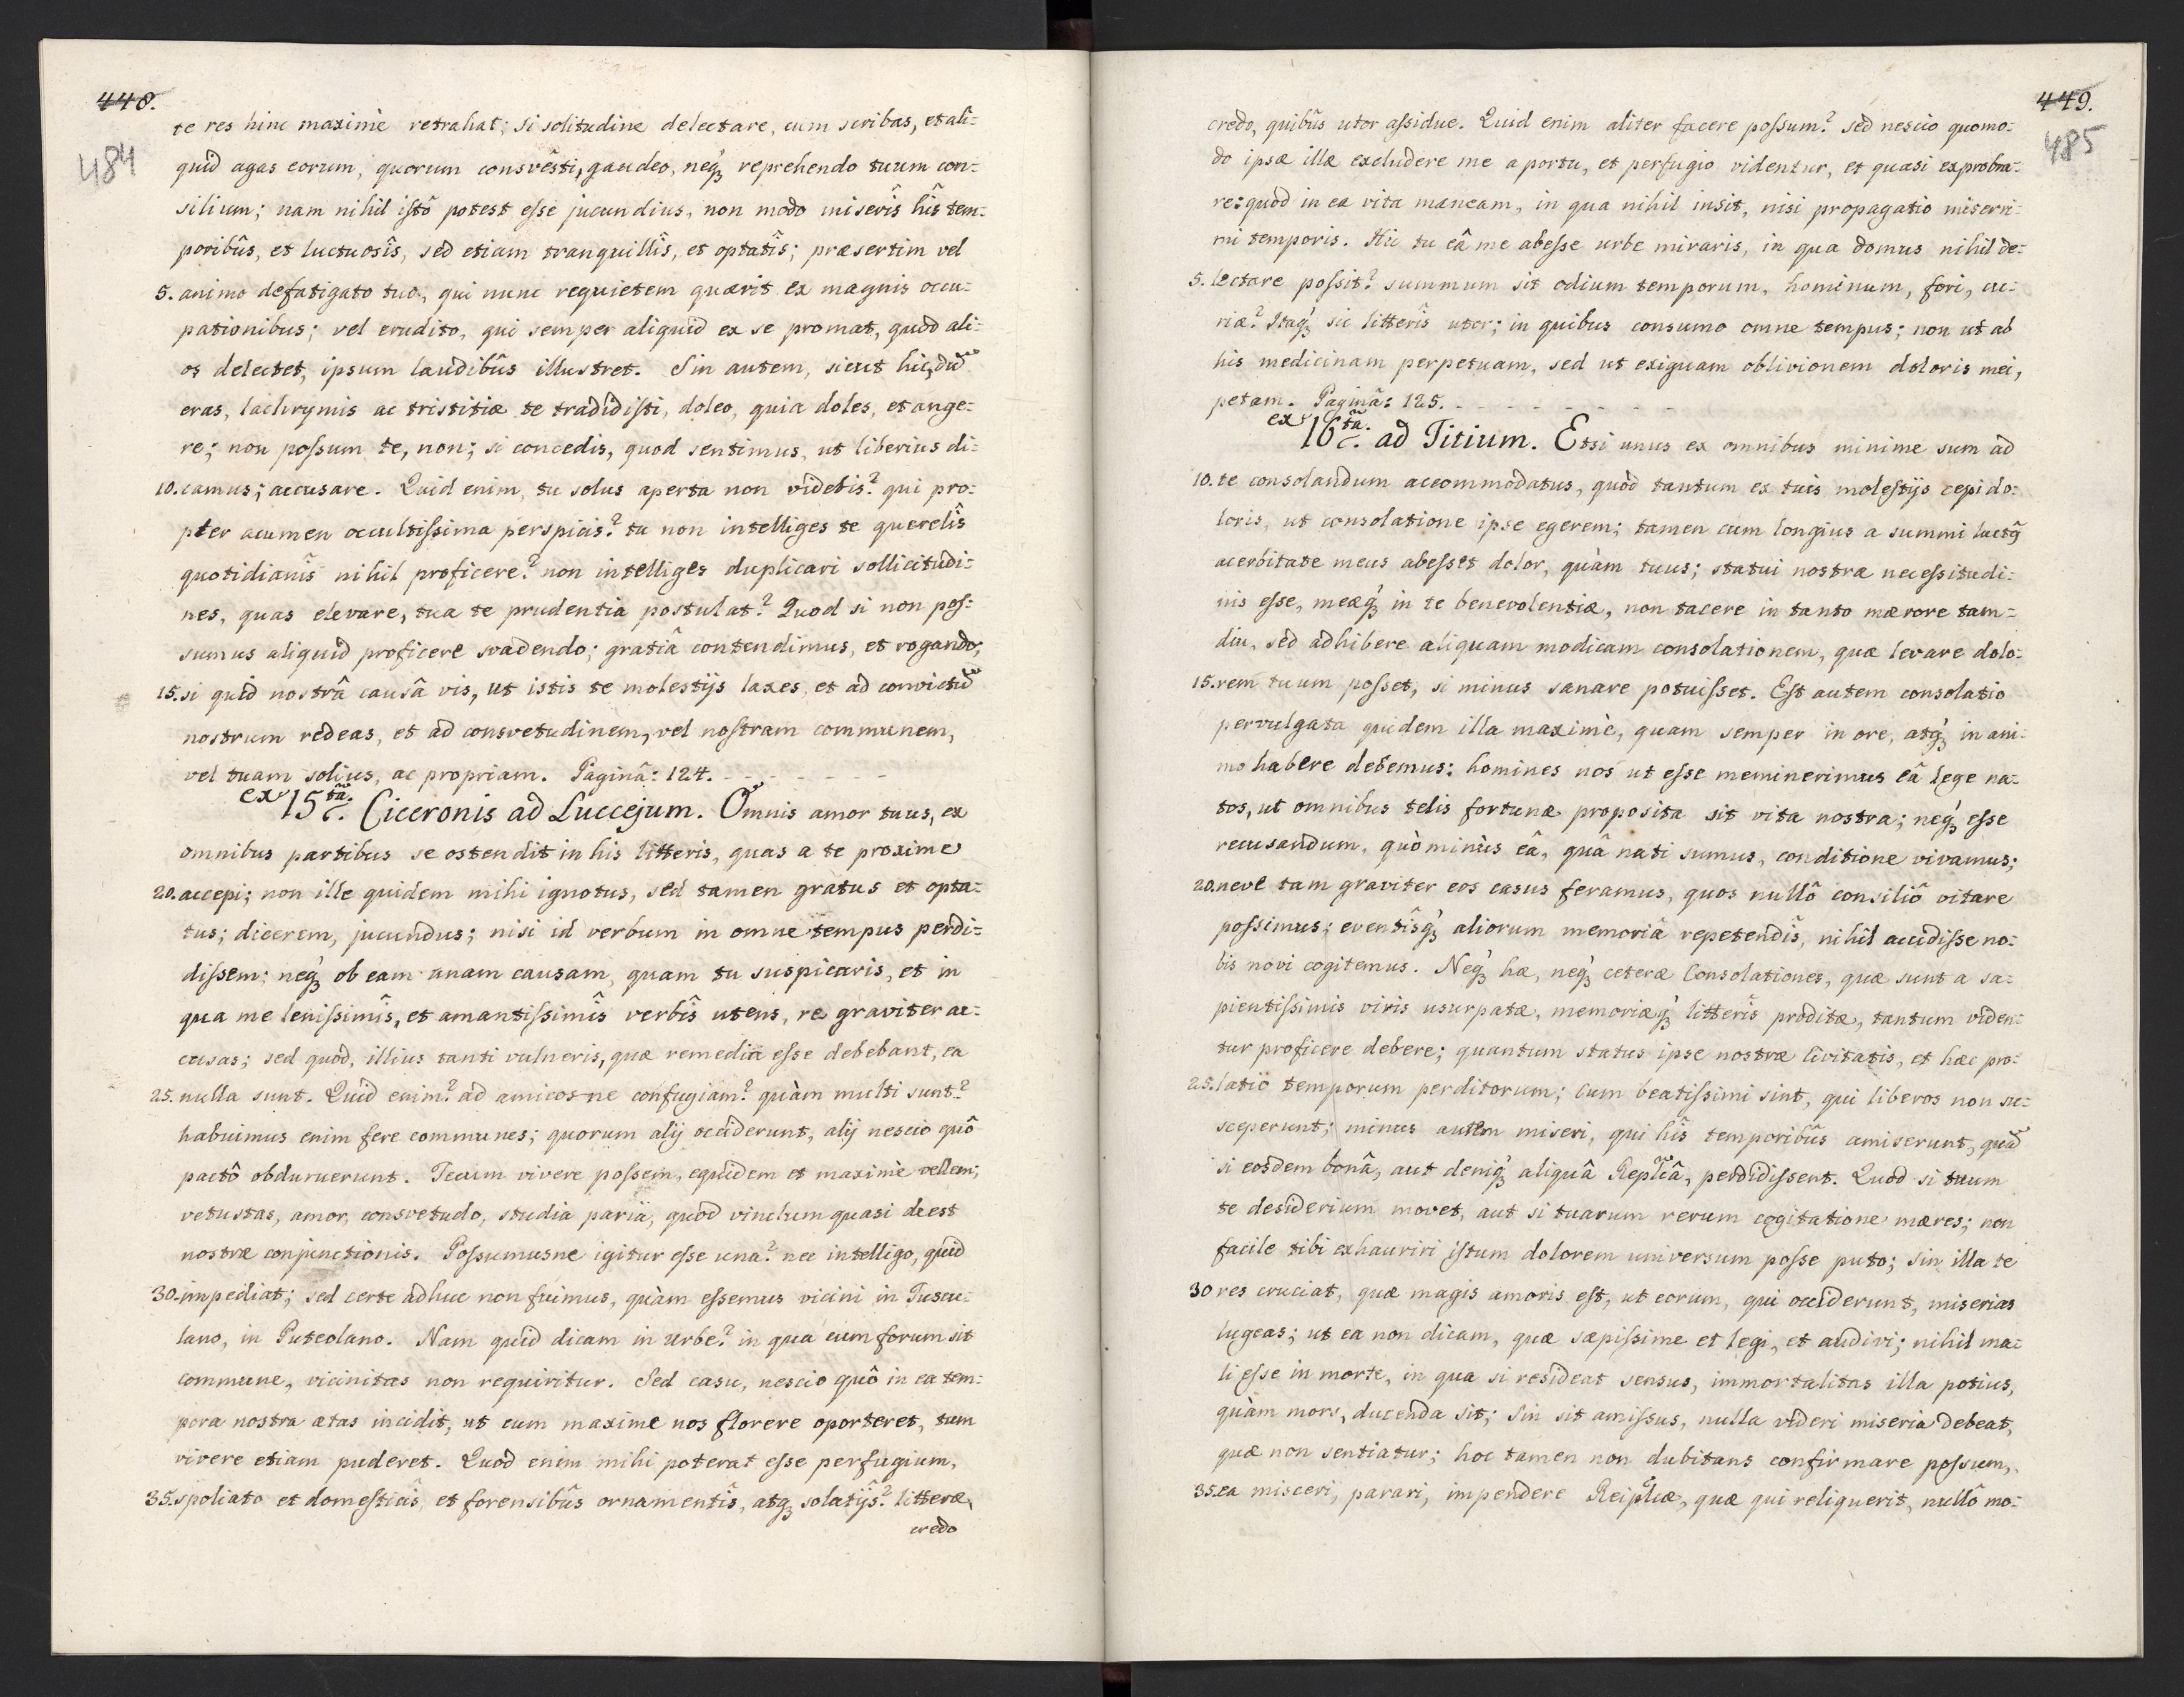 448.
484
te res hinc maximè retrahat; si solitudine delectare, cum scribas, et ali-
quid agas eorum, quorum consvêsti, gaudeo, neq́ꝫ reprehendo tuum con-
silium; nam nihil istô potest esse jucundius, non modo miserîs hîs tem-
poribûs, et luctuosîs, sed etiam tranquillîs, et optatîs; præsertim vel
5. animo defatigato tuo, qui nunc requietem quærit ex magnis occu-
pationibus; vel erudito, qui semper aliquid ex se promat, quod ali-
os delectet, ipsum laudibûs illustret. Sin autem, sicut hic, dũ
eras, lachrymis ac tristitiæ te tradidisti, doleo, quia doles, et ange-
re; non possum te, non; si concedis, quod sentimus, ut liberius di-
10. camus; accusare. Quid enim, tu solus aperta non videbis? qui pro-
pter acumen occultissima perspicis? tu non intelliges te querelîs
quotidianîs nihil proficere? non intelliges duplicari sollicitudi-
nes, quas elevare, tua te prudentia postulat? Quod si non pos-
sumus aliquid proficere svadendo; gratiâ contendimus, et rogando;
15. si quid nostrâ causâ vis, ut istis te molestijs laxes, et ad convictũ
nostrum redeas, et ad consvetudinem, vel nostram communem,
vel tuam solius, ac propriam. Paginâ: 124. - - - - - - -
ex 15.tâ Ciceronis ad Luccejum. Omnis amor tuus, ex
omnibus partibus se ostendit in his litteris, quas a te proxime
20. accepi; non ille quidem mihi ignotus, sed tamen gratus et opta-
tus; dicerem, jucundus; nisi id verbum in omne tempus perdi-
dissem; neq́ꝫ ob eam unam causam, quam tu suspicaris, et in
qua me lenissimîs, et amantissimîs verbîs utens, re graviter ac-
cusas; sed quod, illius tanti vulneris, quæ remedia esse debebant, ea
25. nulla sunt. Quid enim? ad amicos-ne confugiam? quàm multi sunt?
habuimus enim fere communes; quorum alij occiderunt, alij nescio quô
pactô obduruerunt. Tecum vivere possem, equidem et maximè vellem;
vetustas, amor, consvetudo, studia paria, quod vinclum quasi deest
nostræ conjunctionis. Possumusne igitur esse una? nec intelligo, quid
30. impediat; sed certe adhuc non fuimus, quàm essemus vicini in Tuscu-
lano, in Puteolano. Nam quid dicam in Urbe? in qua cum forum sit
commune, vicinitas non requiritur. Sed casu, nescio quô in ea tem-
pora nostra ætas incidit, ut cum maxime nos florere oporteret, tum
vivere etiam puderet. Quod enim mihi poterat esse perfugium,
35. spoliato et domesticîs, et forensibûs ornamentîs, atqꝫ solatijs? litteræ,
credo
449.
485
credo, quibûs utor assidue. Quid enim aliter facere possum? sed nescio quomo-
do ipsæ illæ excludere me a portu, et perfugio videntur, et quasi exprobra-
re: quòd in ea vita maneam, in qua nihil insit, nisi propagatio miserri-
mi temporis. Hic tu eâ me abesse urbe miraris, in qua domus nihil de-
5. lectare possit? summum sit odium temporum, hominum, fori, cu-
riæ? Itaq́ꝫ sic litterîs utor; in quibus consumo omne tempus; non ut ab
his medicinam perpetuam, sed ut exiguam oblivionem doloris mei,
petam. Paginâ: 125. - - - - - - -
ex 16.tâ ad Titium. Etsi unus ex omnibus minime sum ad
10. te consolandum accommodatus, quòd tantum ex tuis molestijs cepi do-
loris, ut consolatione ipse egerem; tamen cum longius a summi luctꝰ
acerbitate meus abesset dolor, quàm tuus; statui nostræ necessitudi-
nis esse, meæq́ꝫ in te benevolentiæ, non tacere in tanto mærore tam-
diu, sed adhibere aliquam modicam consolationem, quæ levare dolo-
15. rem tuum posset, si minus sanare potuisset. Est autem consolatio
pervulgata quidem illa maximè, quam semper in ore, atq́ꝫ in ani-
mo habere debemus: homines nos ut esse meminerimus eâ lege na-
tos, ut omnibus telis fortunæ proposita sit vita nostra; neq́ꝫ esse
recusandum, quòminùs eâ, quâ nati sumus, conditione vivamus;
20. neve tam graviter eos casus feramus, quos nullô consiliô vitare
possimus; eventîsq́ꝫ aliorum memoriâ repetendîs, nihil accidisse no-
bis novi cogitemus. Neq́ꝫ hæ, neq́ꝫ ceteræ Consolationes, quæ sunt a sa-
pientissimis viris usurpatæ, memoriæq́ꝫ litterîs proditæ, tantum viden-
tur proficere debere; quantum status ipse nostræ Civitatis, et hæc pro-
25. latio temporum perditorum; Cum beatissimi sint, qui liberos non su-
sceperunt; minus autem miseri, qui hîs temporibûs amiserunt, quã
si eosdem bonâ, aut deniq́ꝫ aliquâ Replĩcâ, perdidissent. Quod si tuum
te desiderium movet, aut si tuarum rerum cogitatione mæres; non
facile tibi exhauriri istum dolorem universum posse puto; sin illa te
30 res cruciat, quæ magis amoris est, ut eorum, qui occiderunt, miserias
lugeas; ut ea non dicam, quæ sæpissime et legi, et audivi; nihil ma-
li esse in morte, in qua si resideat sensus, immortalitas illa potius,
quàm mors, ducenda sit; sin sit amissus, nulla videri miseria debeat,
quæ non sentiatur; hoc tamen non dubitans confirmare possum,
35. ea misceri, parari, impendere Reiplĩcæ, quæ qui reliquerit, nullô mo-